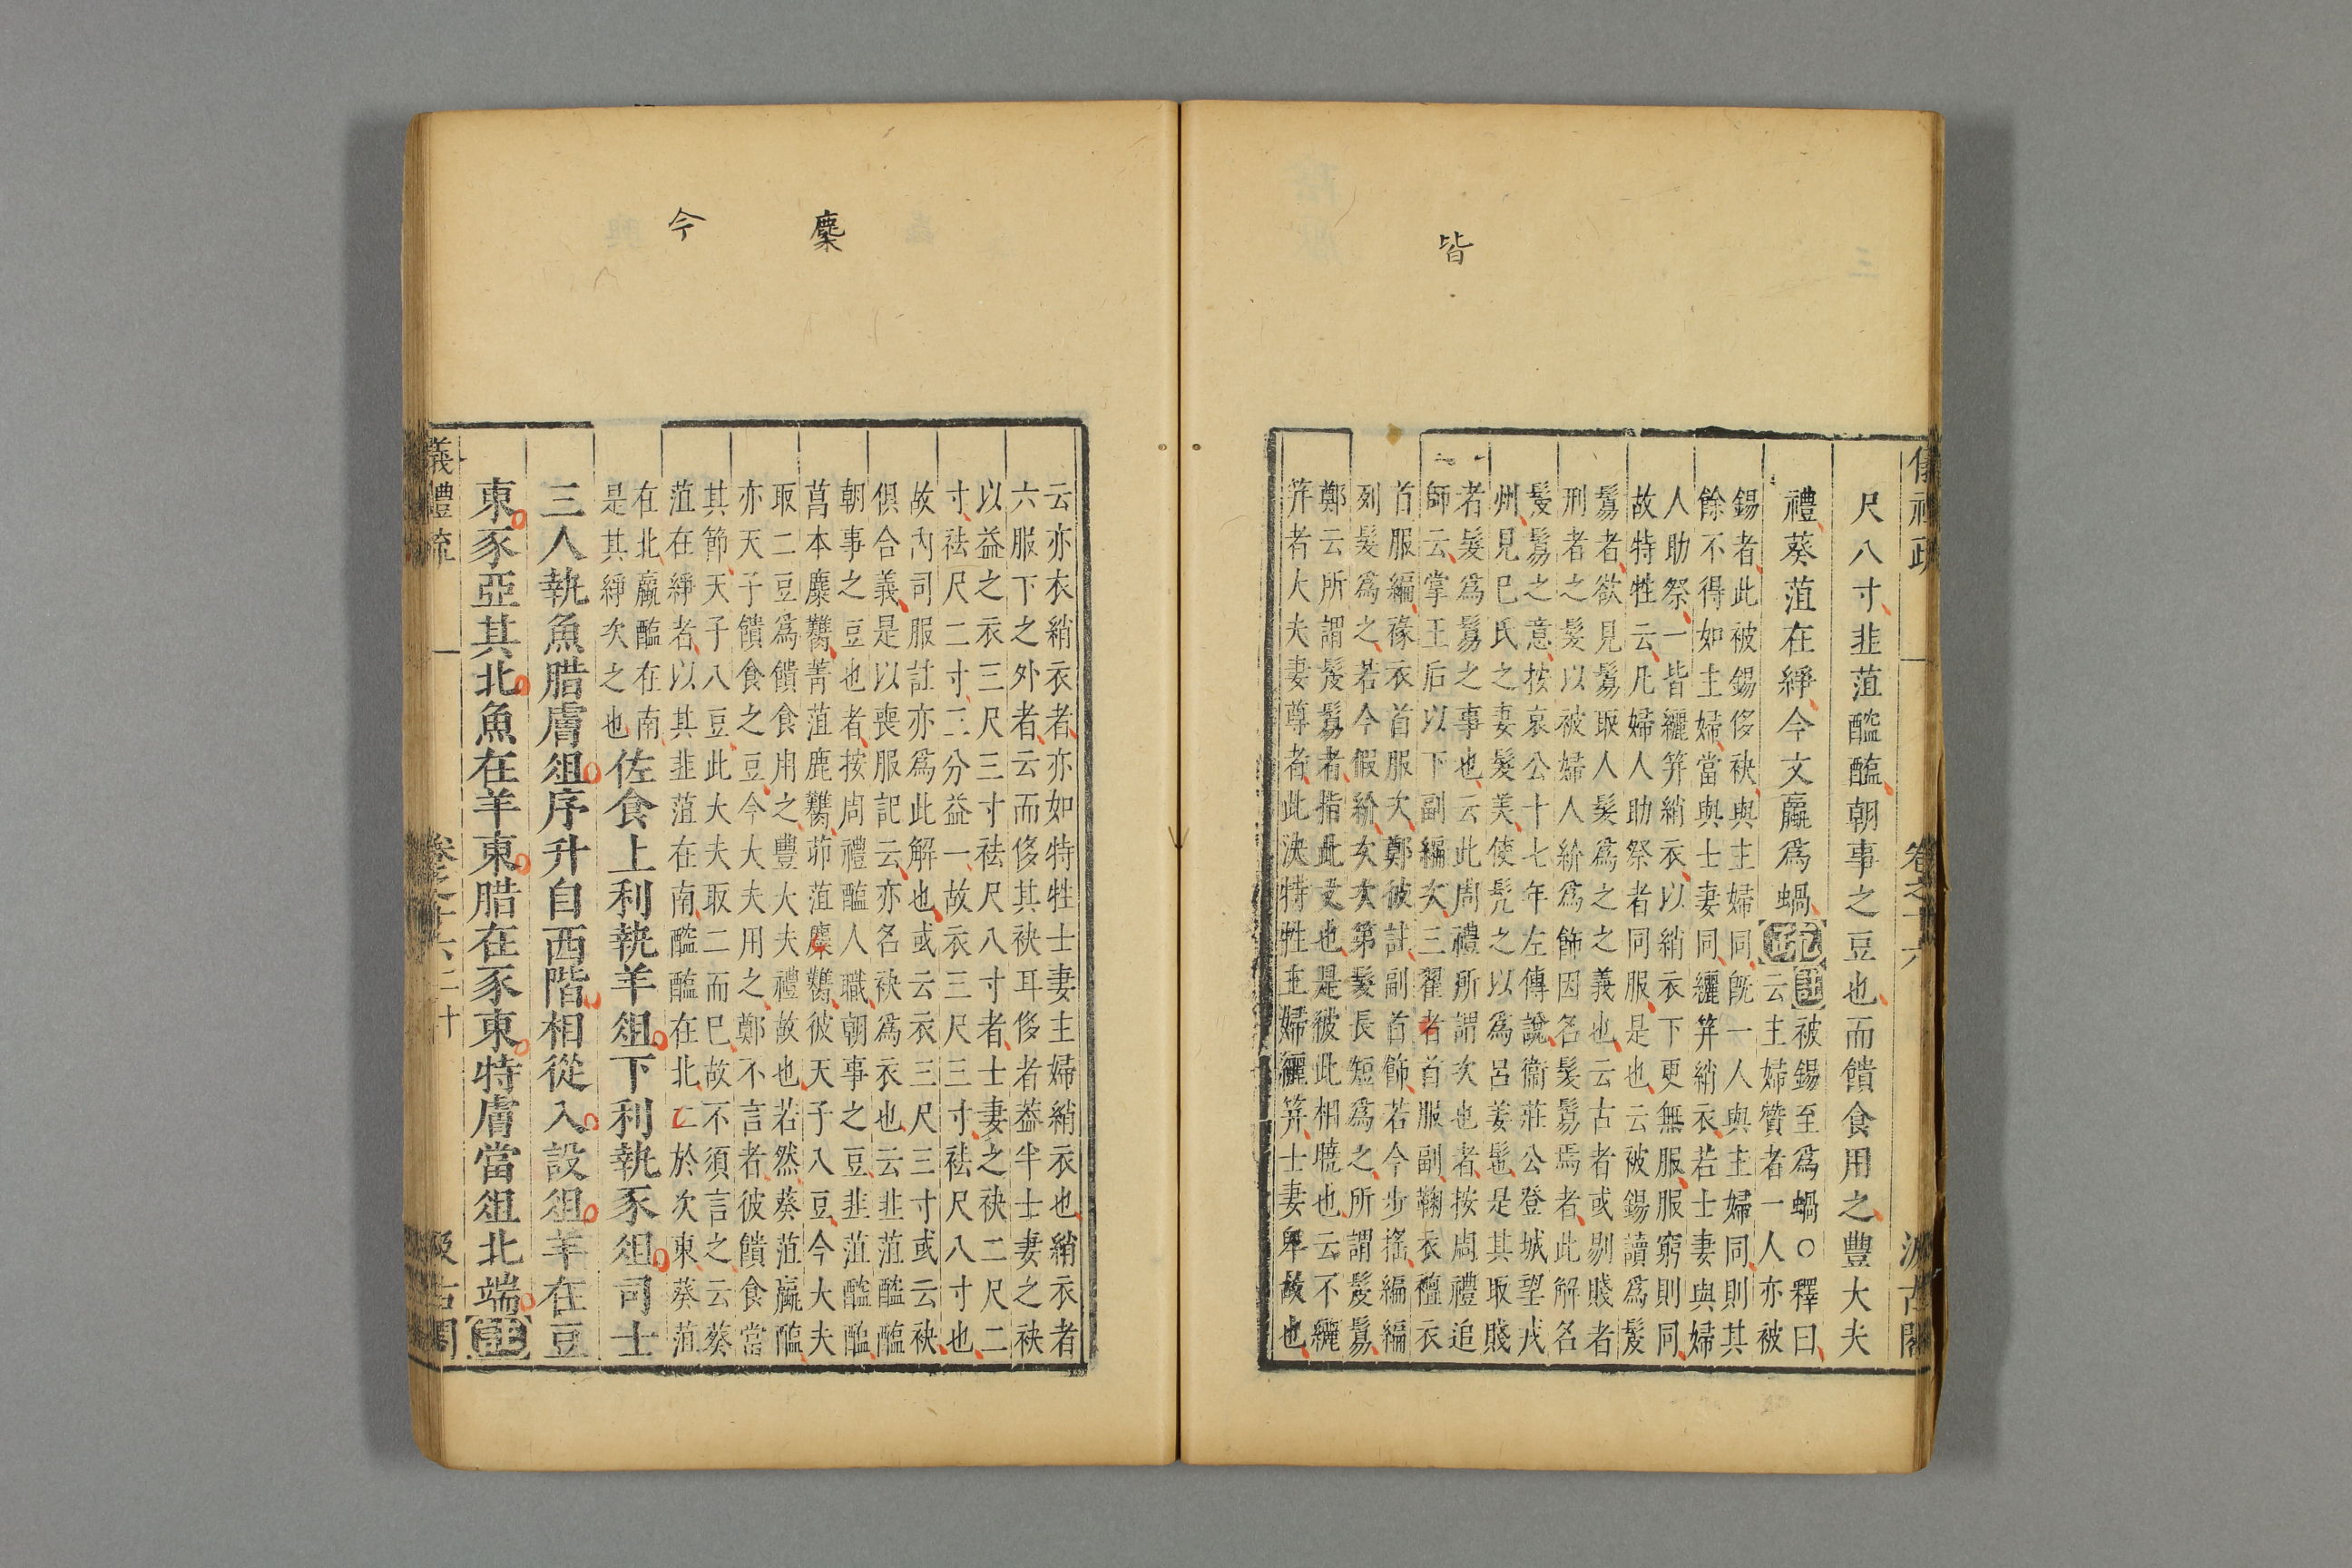 皆
尺八寸韭菹醓醢朝事之豆也而饋食用之豐大夫
禮葵菹在綪今文蠃爲蝸疏註被錫至爲蝸○釋曰
云主婦贊者一人亦被
錫者此被錫侈袂與主婦同旣一人與主婦同則其
餘不得如主婦當與士妻同纚笄綃衣若士妻與婦
人助祭一皆纚笄綃衣以綃衣下更無服服窮則同
故特牲云凡婦人助祭者同服是也云被錫讀爲髲
鬄者欲見鬄取人髮爲之之義也云古者或剔賤者
刑者之髮以被婦人紒爲飾因名髮鬄焉者此解名
髲鬄之意按哀公十七年左傳說衞莊公登城望戎
州見巳氏之妻髮美使髠之以爲呂姜髢是其取賤
者髮爲鬄之事也云此周禮所謂次也者按周禮追
師云掌王后以下副編次三翟者首服副鞠衣襢衣
首服編褖衣首服次鄭彼註副首飾若今步搖編編
列髮爲之若今假紒次次第髮長短爲之所謂髲鬄
鄭云所謂髲鬄者指此文也是彼此相曉也云不纚
笄者大夫妻尊者此決特牲主婦纚笄士妻卑故也
卷之十六
汲古閣
今
麋
云亦衣綃衣者亦如特牲士妻主婦綃衣也綃衣者
六服下之外者云而侈其袂耳侈者葢半士妻之袂
以益之衣三尺三寸袪尺八寸者士妻之袂二尺二
寸袪尺二寸三分益一故衣三尺三寸袪尺八寸也
故內司服註亦爲此解也或云衣三尺三寸或云袂
俱合義是以喪服記云亦名袂爲衣也云韭菹醓醢
朝事之豆也者按周禮醢人職朝事之豆韭菹醓醢
菖本麋臡菁菹鹿臡茆菹麋臡彼天子八豆今大夫
取二豆爲饋食用之豐大夫禮故也若然葵菹蠃醢
亦天子饋食之豆今大夫用之鄭不言者彼饋食當
其節天子八豆此大夫取二而巳故不須言之云葵
菹在綪者以其韭菹在南醓醢在北二於次東葵菹
在北蠃醢在南
是其綪次之也佐食上利執羊俎下利執豕俎司士
三人執魚腊膚俎序升自西階相從入設俎羊在豆
東豕亞其北魚在羊東腊在豕東特膚當俎北端註